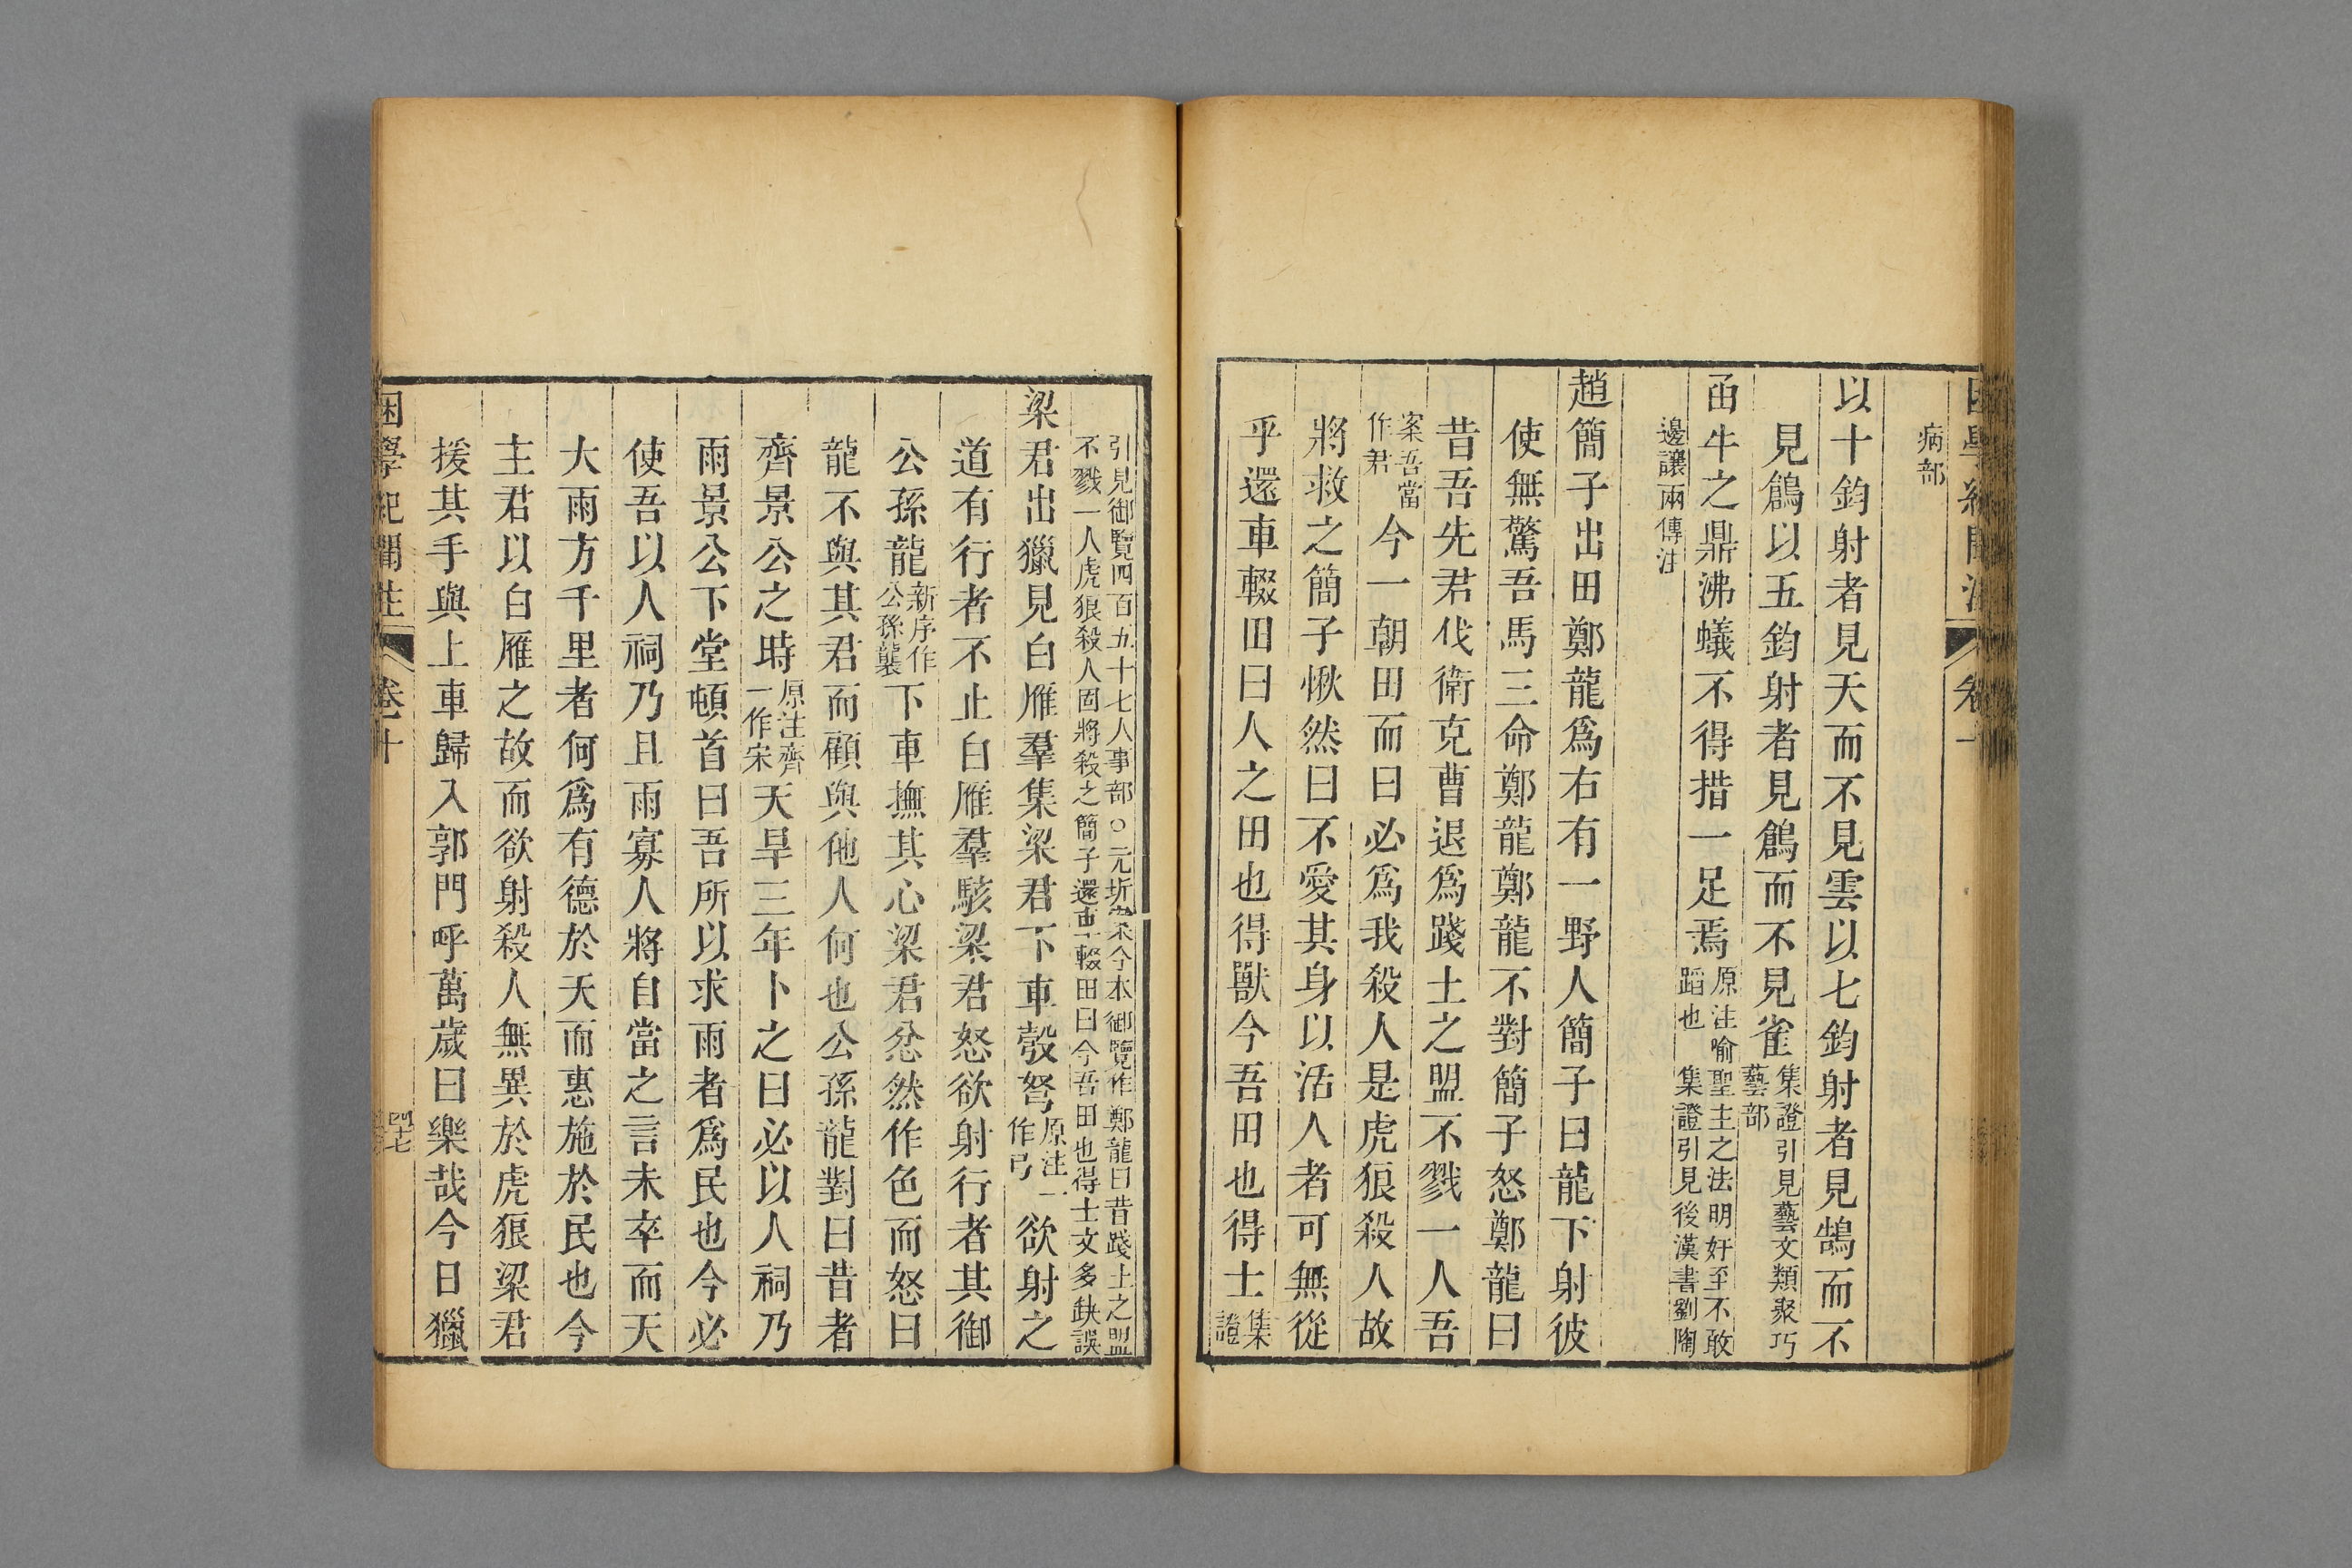 病部
以十鈞射者見天而不見雲以七鈞射者見鵠而不
見鶬以五鈞射者見鶬而不見雀集證引見藝文類聚巧藝部
函牛之鼎沸蟻不得措一足焉原注喻聖主之法明奸至不敢蹈也 集證引見後漢書劉陶
邊讓兩傳注
趙簡子出田鄭龍爲右有一野人簡子曰龍下射彼
使無驚吾馬三命鄭龍鄭龍不對簡子怒鄭龍曰
昔吾先君伐衛克曹退爲踐土之盟不戮一人吾
案吾當作君今一朝田而曰必爲我殺人是虎狼殺人故
將救之簡子愀然曰不愛其身以活人者可無從
乎還車輟田曰人之田也得獸今吾田也得士集證
引見御覽四百五十七人事部○元圻案今本御覽作鄭龍曰昔踐土之盟
不戮一人虎狼殺人固將殺之簡子還車輟田曰今吾田也得士文多缺誤
梁君出獵見白雁羣集梁君下車彀弩原注一作弓欲射之
道有行者不止白雁羣駭梁君怒欲射行者其御
公孫龍新序作公孫襲下車撫其心梁君忿然作色而怒曰
龍不與其君而顧與他人何也公孫龍對曰昔者
齊景公之時原注齊一作宋天旱三年卜之曰必以人祠乃
雨景公下堂頓首曰吾所以求雨者爲民也今必
使吾以人祠乃且雨寡人將自當之言未卒而天
大雨方千里者何爲有德於天而惠施於民也今
主君以白雁之故而欲射殺人無異於虎狼梁君
援其手與上車歸入郭門呼萬歲曰樂哉今日獵
困學紀聞注 卷十 四七